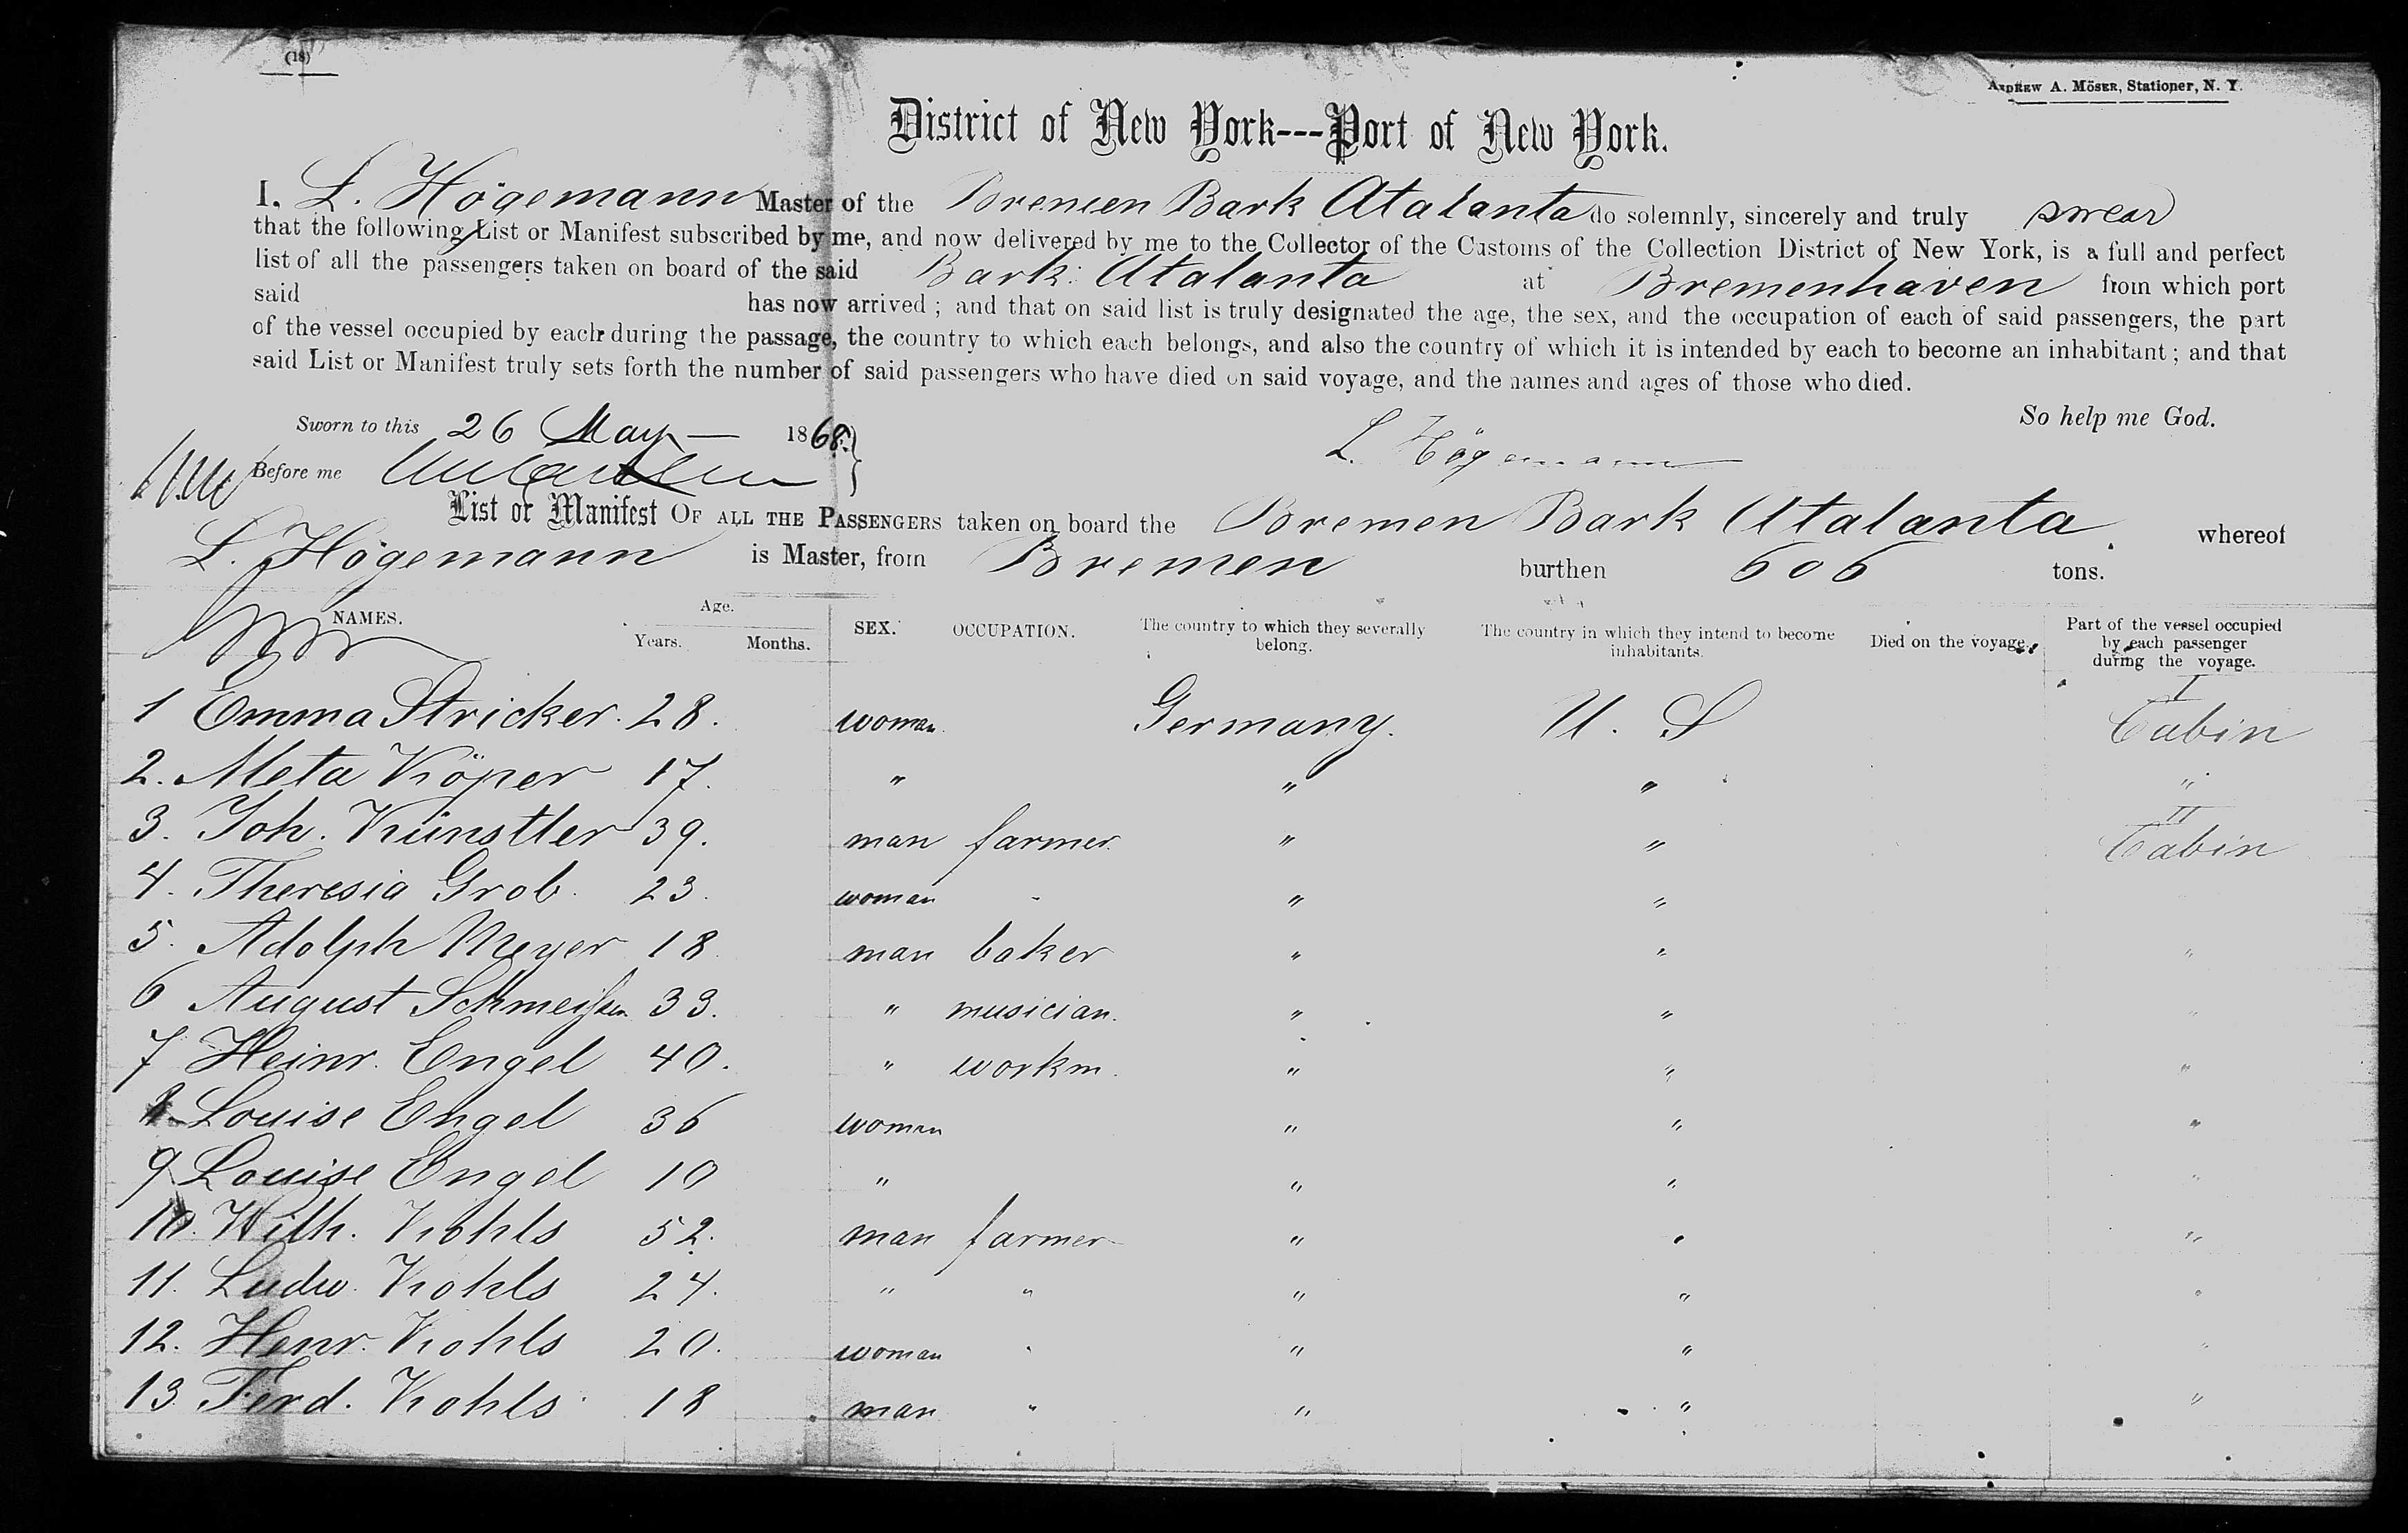 (18)
ANDREW A. MÖSER, Stationer, N. Y.
District of New York---Port of New York.
I, L. Högemann Master of the Bremen Bark Atalanta do solemnly, sincerely and truly swear
that the following List or Manifest subscribed by me, and now delivered by me to the Collector of the Customs of the Collection District of New York, is a full and perfect
list of all the passengers taken on board of the said Bark: Atalanta at Bremenhaven from which port
said has now arrived; and that on said list is truly designated the age, the sex, and the occupation of each of said passengers, the part
of the vessel occupied by each during the passage, the country to which each belongs, and also the country of which it is intended by each to become an inhabitant; and that
said List or Manifest truly sets forth the number of said passengers who have died on said voyage, and the names and ages of those who died.
So help me God.
Sworn to this 26 May — 1868.
L. Högemann
Before me
List or Manifest OF ALL THE PASSENGERS taken on board the Bremen Bark Atalanta. whereof
L. Högemann is Master, from Bremen burthen 606 tons.
NAMES. Age. Years. Months. SEX. OCCUPATION. The country to which they severally belong. The country in which they intend to become inhabitants. Died on the voyage. Part of the vessel occupied by each passenger during the voyage.
1 Emma Stricker. 28. woman. Germany. U. S I Cabin
2. Meta Köper 17. " " " "
3. Joh. Künstler 39. man farmer. " " II Cabin
4. Theresia Grob. 23. woman - " "
5. Adolph Meyer 18. man baker " " "
6 August 33. " musician. " " "
7 Heinr. Engel 40. " workm. " " "
8 Louise Engel 36 woman " " "
9 Louise Engel 10 " " " "
10. Wilh. Kohls 52. man farmer " " "
11. Ludw. Kohls 24. " " " " "
12. Henr. Kohls 20. woman " " " "
13 Ferd. Kohls. 18 man " " " "